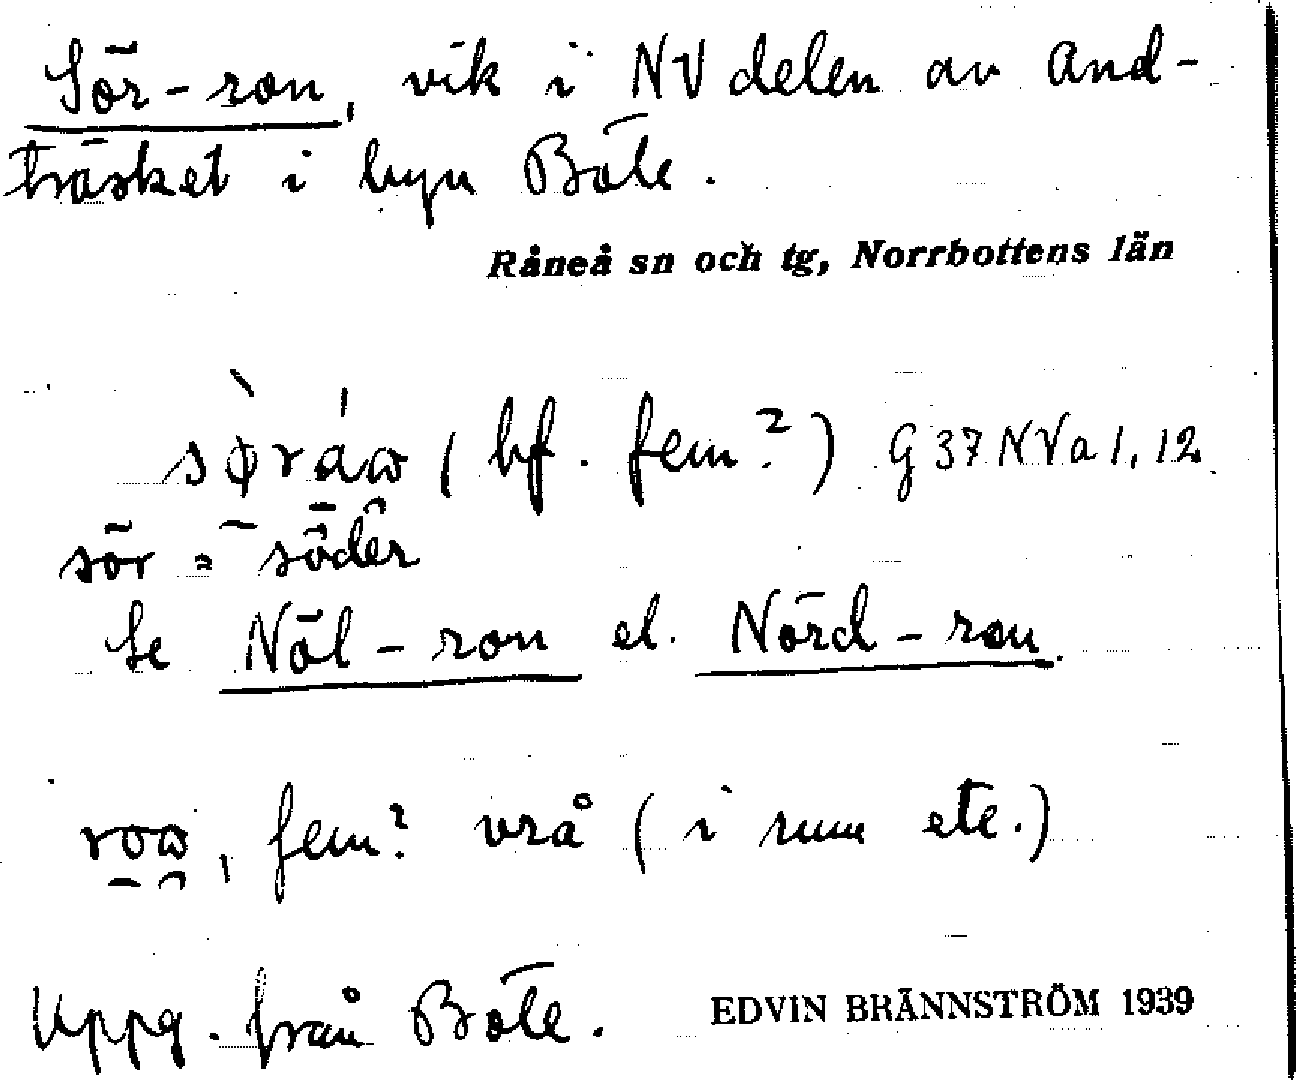 Sör-rou, vik i NV delen av And-
träsket i byn Böle.
Råneå sn och tg, Norrbottens län
(bf. fem?) G 37 NVa 1, 12
sör = söder
Se Nöl-rou el. Nörd-rou.
fem? vrå (i rum etc.)
Uppg. från Böle.
EDVIN BRÄNNSTRÖM 1939